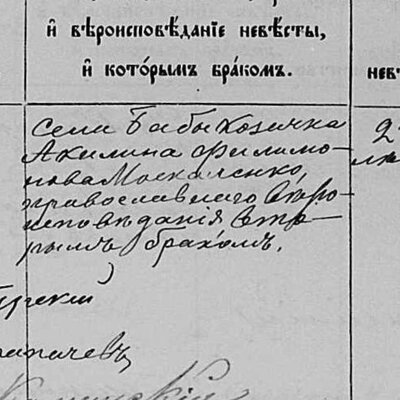 и҆ вѣроисповѣданіе невѣсты,
и҆ кото́рымъ бра́комъ.
невѣ
Села Бабы Козачка
Акилина Филимо-
нова Москаленко,
православнаго вѣро-
исповѣданія вто-
рымъ бракомъ.